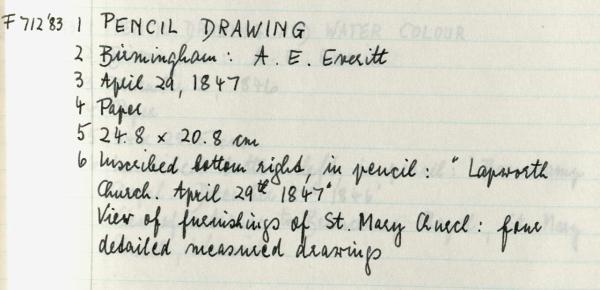 F 712'83 1 PENCIL DRAWING
2 Birmingham: A. E. Everitt
3 April 29, 1847
4 Paper
5 24.8 x 20.8 cm
6 Inscribed bottom right, in pencil: "Lapworth
Church. April 29th 1847"
View of furnishings of St. Mary Church: four
detailed measured drawings